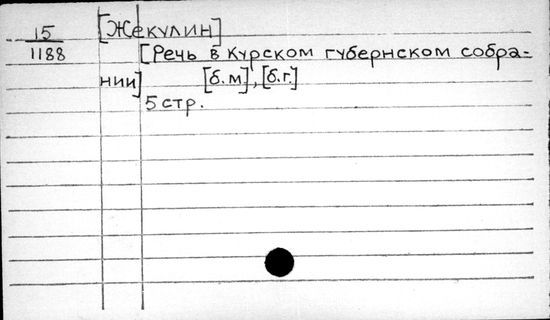 15 [Жекулин]
1188 [Речь в Курском губернском собра-
нии] [б.м], [б.г.]
5 стр.